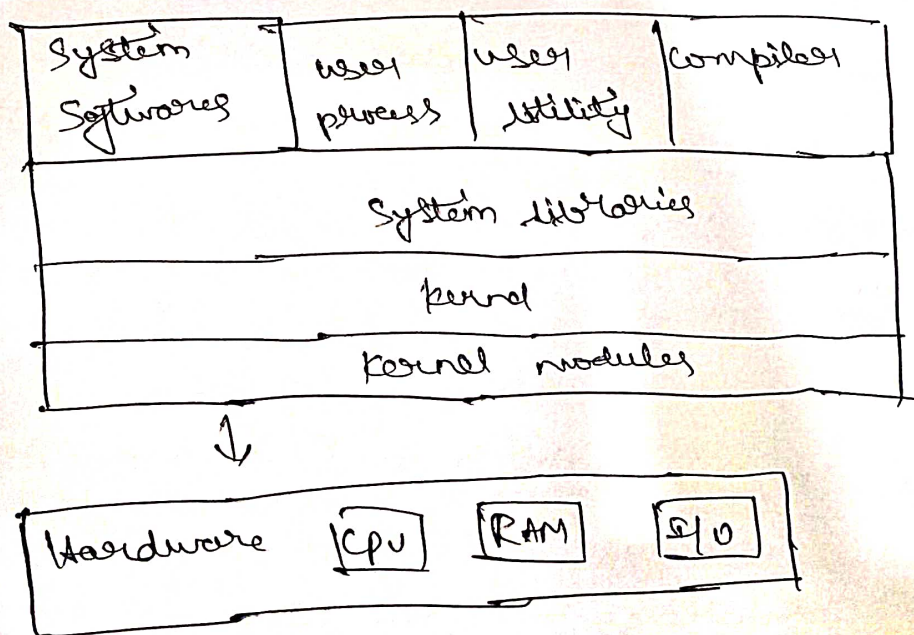 System
Softwares
user
process
user
Utility
compiler
System libraries
kernel
Kernel modules
Hardware CPU RAM I/O